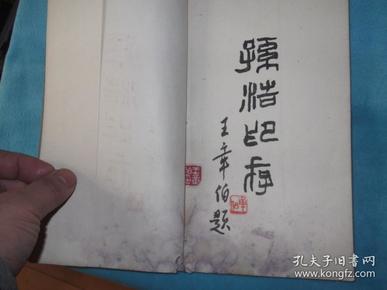 孫浩印存
王幸伯題
孔夫子旧书网
www.kongfz.com